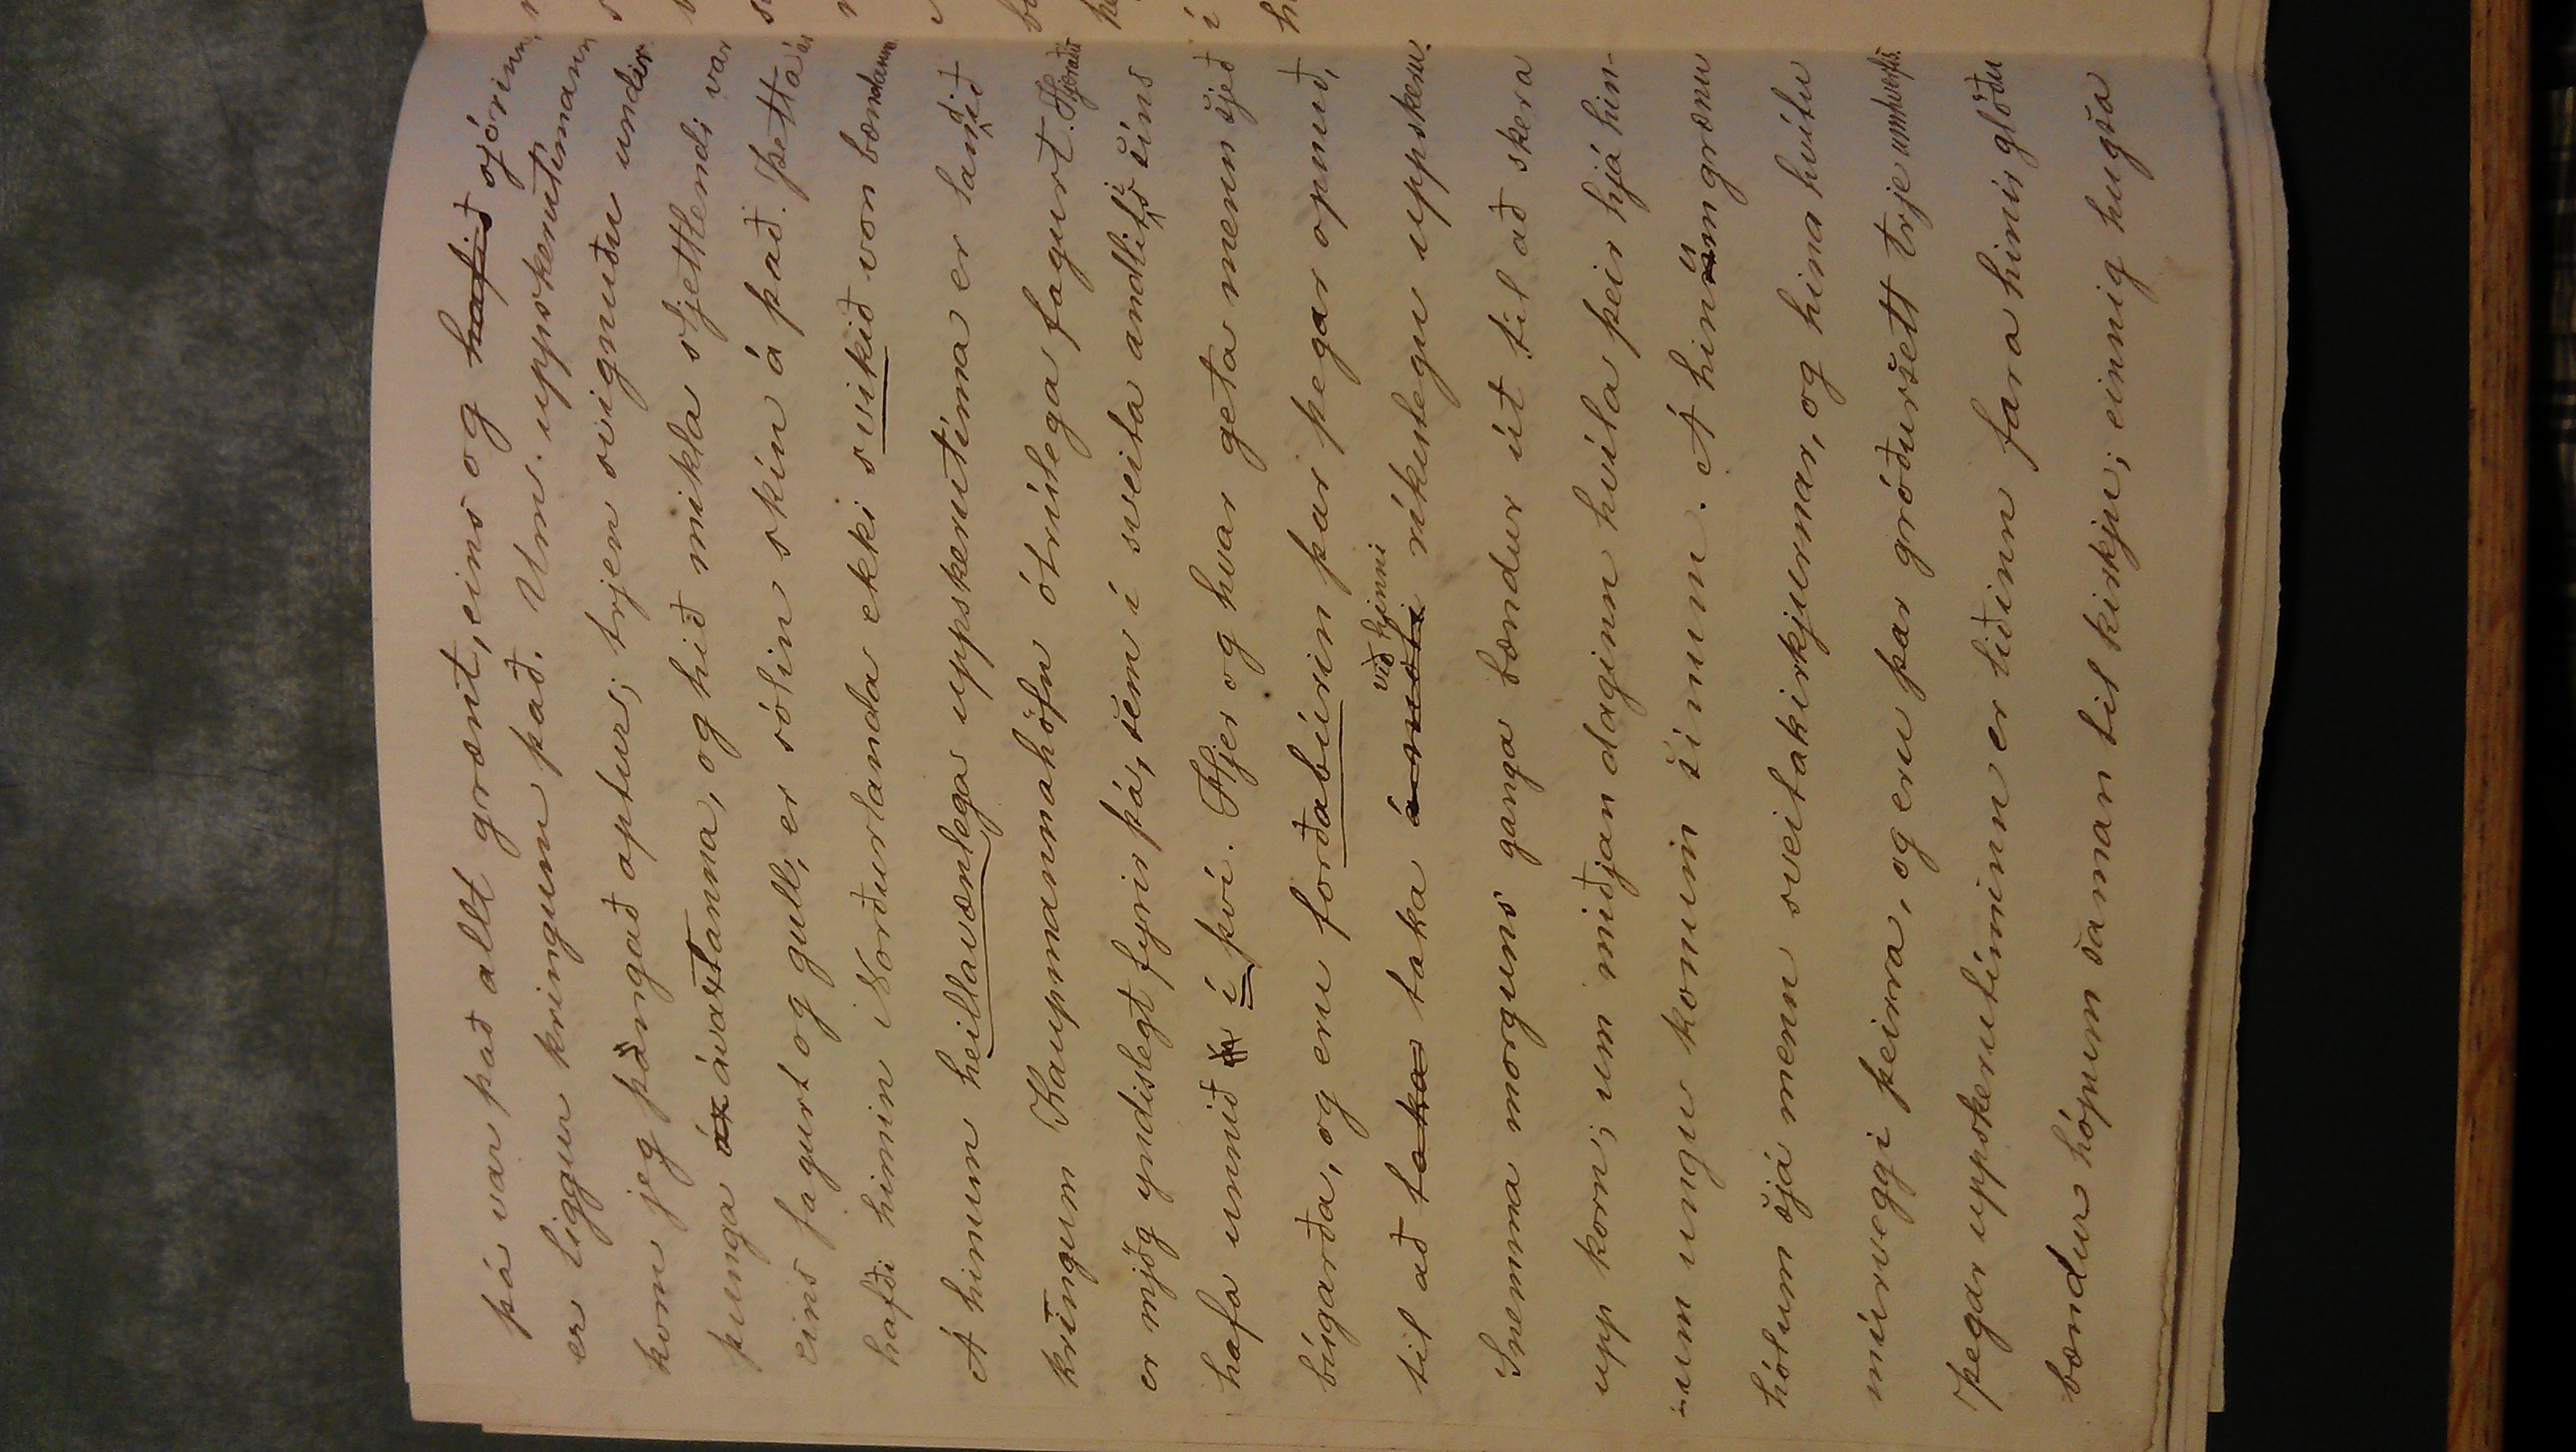 þá var það allt grænt, eins og hafið sjórinn,
er liggur kringum það. Um uppskerutímann
kom jeg þángað aptur; trjen svignuðu undir
þunga áx ávaxtanna, og hið mikla sljettlendi var
eins fagurt og gull, er sólin skín á það. Þetta ár
hafði himin Norðurlanda ekki svikið von bændanna
Á hinum heillavænlega uppskerutíma er landið
kringum Kaupmannahöfn ótrúlega fagurt. Hjeraðið
er mjög yndislegt fyrir þá, sem í sveita andlitis síns
hafa unnið í því. Hjer og hvar geta menn sjeð
búgarða, og eru forðabúrin þar þegar opnuð,
til að taka taka á móti við hinni ríkulegu uppskeru.
Snemma morguns ganga bændur út til að skera
upp korn; um miðjan daginn hvíla þeir hjá hin-
um ungu konum sínum. Á hinum grænu
hólum sjá menn sveitakirkjurnar, og hina hvítu
múrveggi þeirra, og eru þar gróðursett trje umhverfis.
Þegar uppskerutíminn er liðinn fara hinir glöðu
bændur hópum saman til kirkju; einnig hugsa